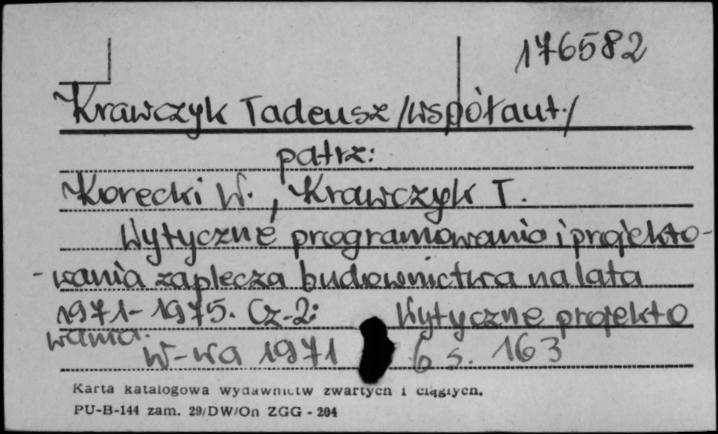 176582
Krawczyk Tadeusz /współaut./
patrz:
Korecki W., Krawczyk T.
Wytyczne programowania i projekto-
-wania zaplecza budownictwa na lata
1971-1975. Cz-2: Wytyczne projekto
wania.
W-wa 1971 6 s. 163
Karta katalogowa wydawnictw zwartych i ciągłych.
PU-B-144 zam. 29/DW/On ZGG - 204